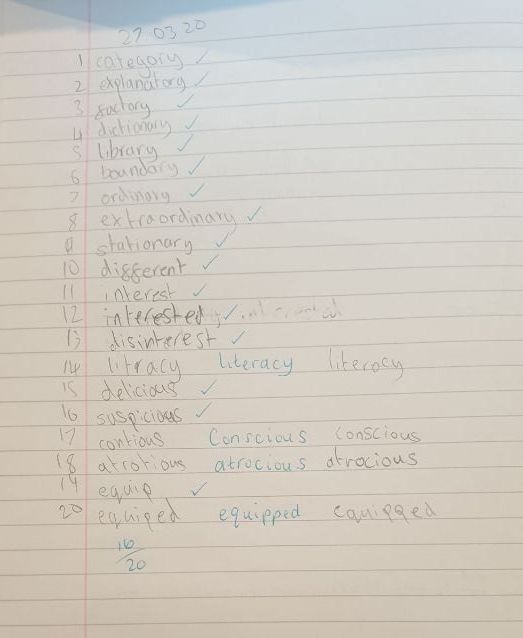 27 03 20
1 category ✓
2 explanatory ✓
3 factory ✓
4 dictionary ✓
5 library ✓
6 boundary ✓
7 ordinary ✓
8 extraordinary ✓
9 stationary ✓
10 different ✓
11 interest ✓
12 interested ✓
13 disinterest ✓
14 litracy literacy literocy
15 delicious ✓
16 suspicious ✓
17 contious Conscious conscious
18 atrotious atrocious atrocious
19 equip ✓
20 equiped equipped equipped
16
20